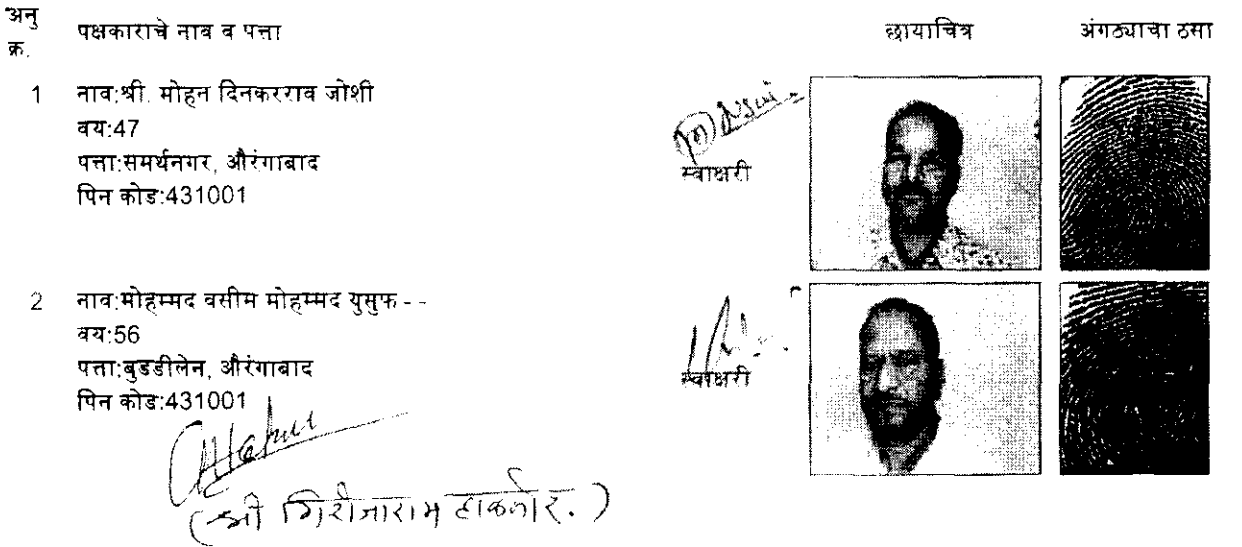 अनु क्र. पक्षकाराचे नाव व पत्ता छायाचित्र अंगठ्याचा ठसा
1 नाव:श्री. मोहन दिनकरराव जोशी
वय:47
पत्ता:समर्थनगर, औरंगाबाद
स्वाक्षरी
पिन कोड:431001
2 नाव:मोहम्मद वसीम मोहम्मद युसुफ - -
वय:56
पत्ता:बुडडीलेन, औरंगाबाद
स्वाक्षरी
पिन कोड:431001
(श्री गिरीजाराम हाकनोर.)